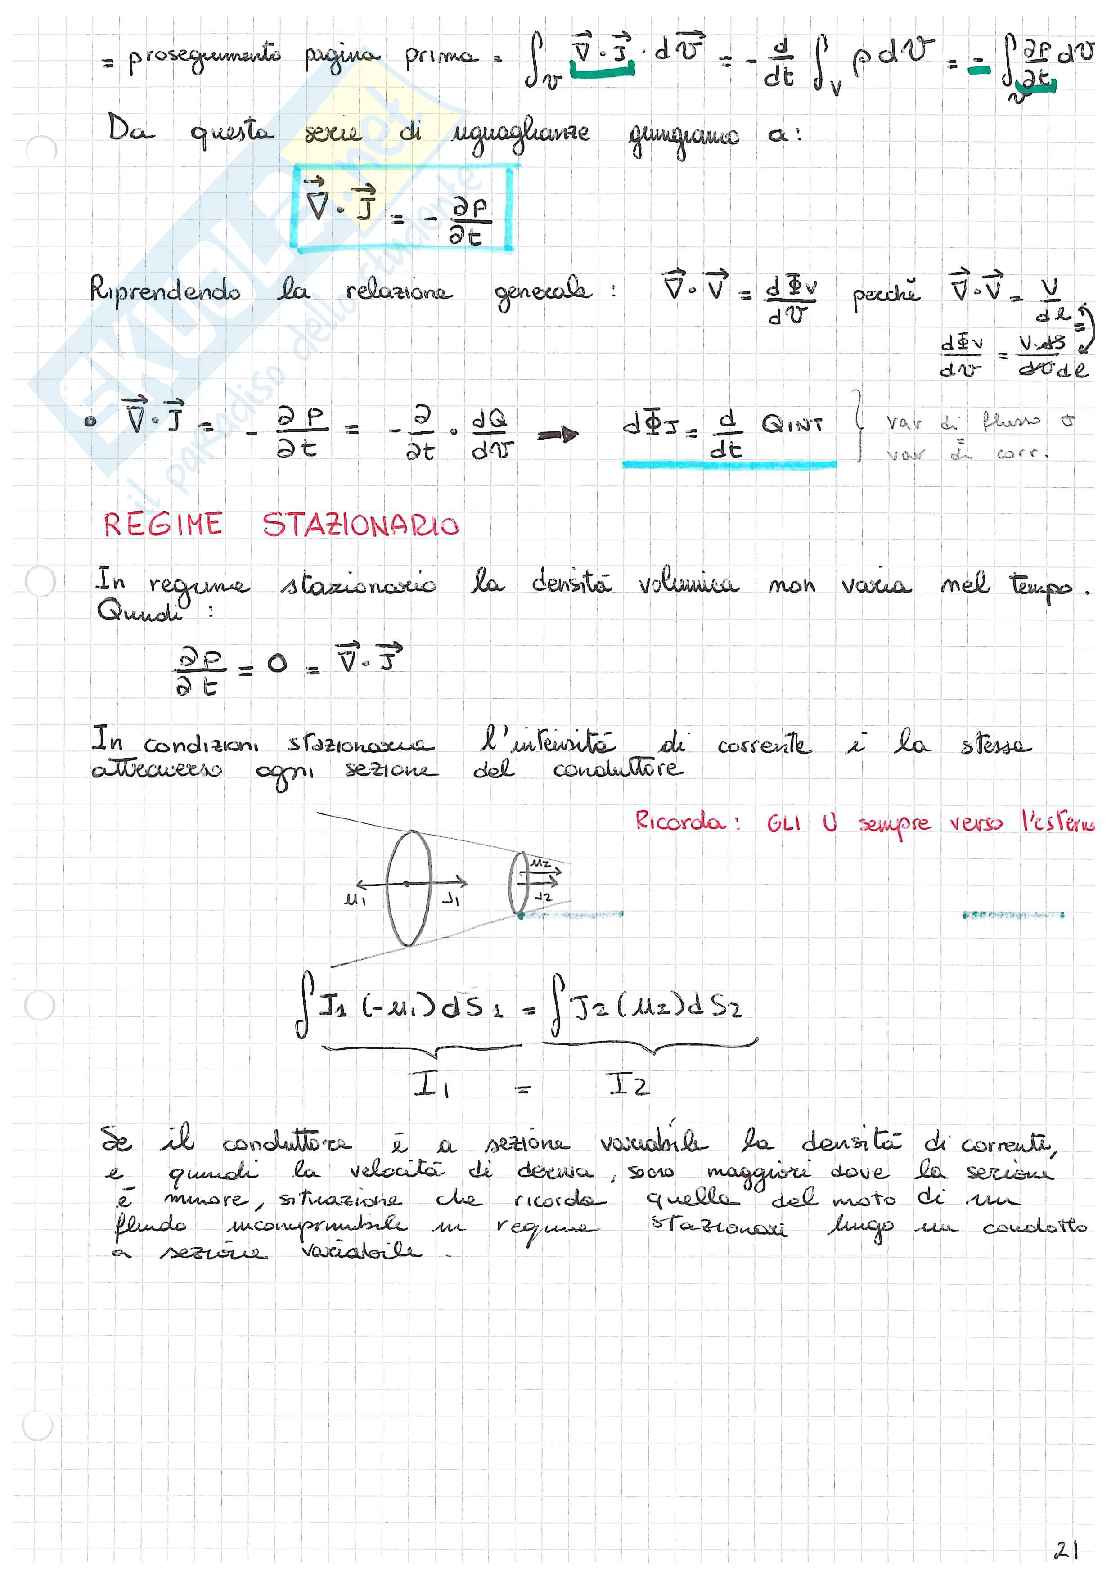 = proseguimento pagina prima = ∫_V ∇⃗·J⃗ · dV⃗ = - d/dt ∫_V ρ dV = - ∫_V ∂ρ/∂t dV
Da questa serie di uguaglianze giungiamo a:
∇⃗·J⃗ = - ∂ρ/∂t
Riprendendo la relazione generale : ∇⃗·V⃗ = dΦv/dV perchè ∇⃗·V⃗ = V/dl
dΦv/dV = V·dS/dS dl
• ∇⃗·J⃗ = - ∂ρ/∂t = - ∂/∂t · dQ/dV → dΦJ = d/dt QINT } var di flusso
= var di corr.
REGIME STAZIONARIO
In regime stazionario la densità volumica non varia nel tempo.
Quindi :
∂ρ/∂t = 0 = ∇⃗·J⃗
In condizioni stazionaria l'intensità di corrente è la stessa
attraverso ogni sezione del conduttore
Ricorda: GLI U sempre verso l'esterno
u1 J1 u2 J2
∫ J1 (-u1) dS1 = ∫ J2 (u2) dS2
I1 = I2
Se il conduttore è a sezione variabile la densità di corrente,
e quindi la velocità di deriva, sono maggiori dove la sezione
è minore, situazione che ricorda quella del moto di un
fluido incomprimibile in regime stazionari lungo un condotto
a sezione variabile.
21
SKUOLA.net
il paradiso dello studente